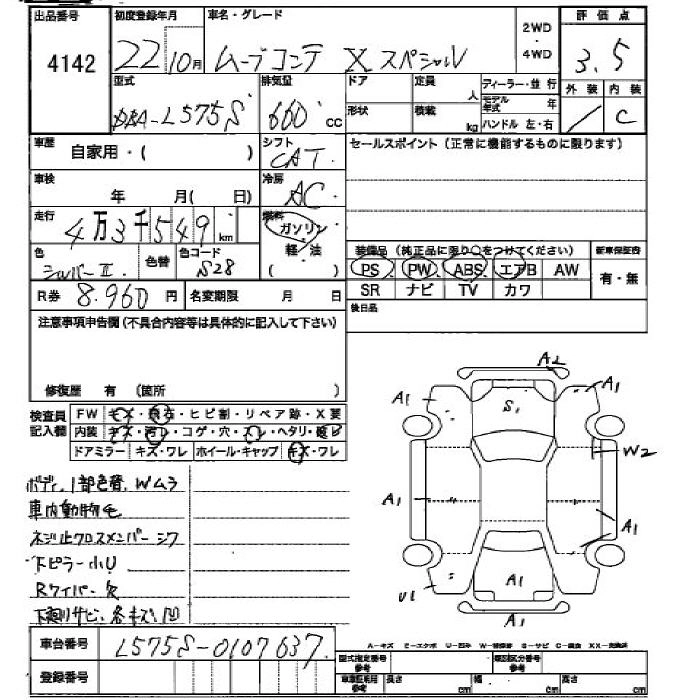 出品番号 初度登録年月 車名・グレード 2WD・4WD 評価点
4142 22 10月 ムーブコンテ Xスペシャル 3.5
型式 排気量 ドア 定員 人 ディーラー・並行 外装 内装
DBA-L575S 660cc 形状 積載 kg モデル年式 年 ハンドル 左・右 / C
車歴 自家用・( ) シフト CAT セールスポイント(正常に機能するものに限ります)
車検 年 月( 日) 冷房 AC
走行 4万3千549km 燃料 ガソリン 軽・油 ( )
色 シルバーII 色替 色コード S28
装備品(純正品に限り○をつけてください) 新車保証書
PS PW ABS エアB AW 有・無
SR ナビ TV カワ
R券 8.960円 名変期限 月 日 後日品
注意事項申告欄(不具合内容等は具体的に記入して下さい)
修復歴 有 (箇所 )
検査員記入欄 FW キズ・飛石・ヒビ割・リペア跡・X要
内装 キズ・汚レ・コゲ・穴・スレ・ヘタリ・破レ
ドアミラー キズ・ワレ ホイール・キャップ キズ・ワレ
A2
A1 S1 A1
W2
A1 A1
U1 A1
A1
ボディ1部色替、Wムラ
車内動物毛
ネジ止クロスメンバーシワ
下ピラー小U
Rワイパー欠
下廻りサビ、各キズ凹
車台番号 L575S-0107637
登録番号
A-キズ E-エクボ U-凹ミ W-補修跡 S-サビ C-腐食 XX-交換済
型式指定番号 類別区分番号
車庫証明用参考 長さ cm 幅 cm 高さ cm